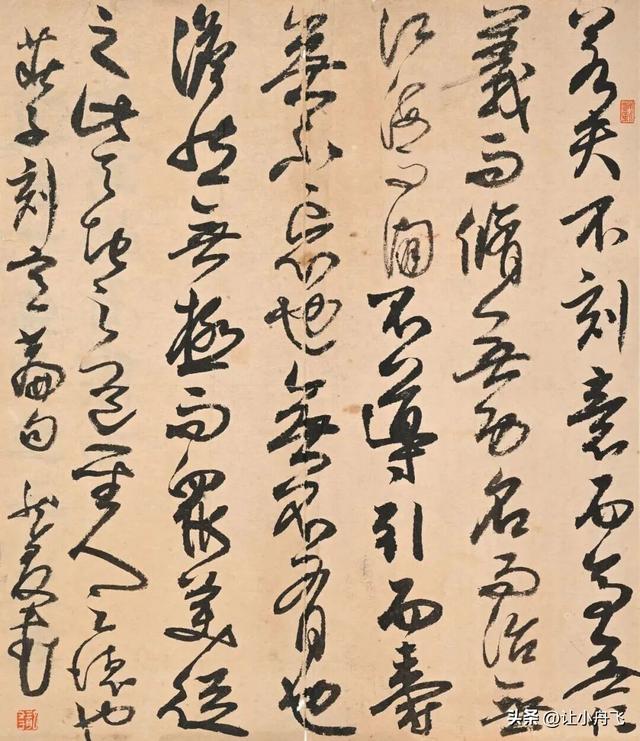 若夫不刻意而高無仁
義而脩無功名而治無
江海而閒不導引而壽
無不忘也無不有也
澹然無極而眾美從
之此天地之道聖人之德也
莊子刻意篇句
头条 @让小舟飞